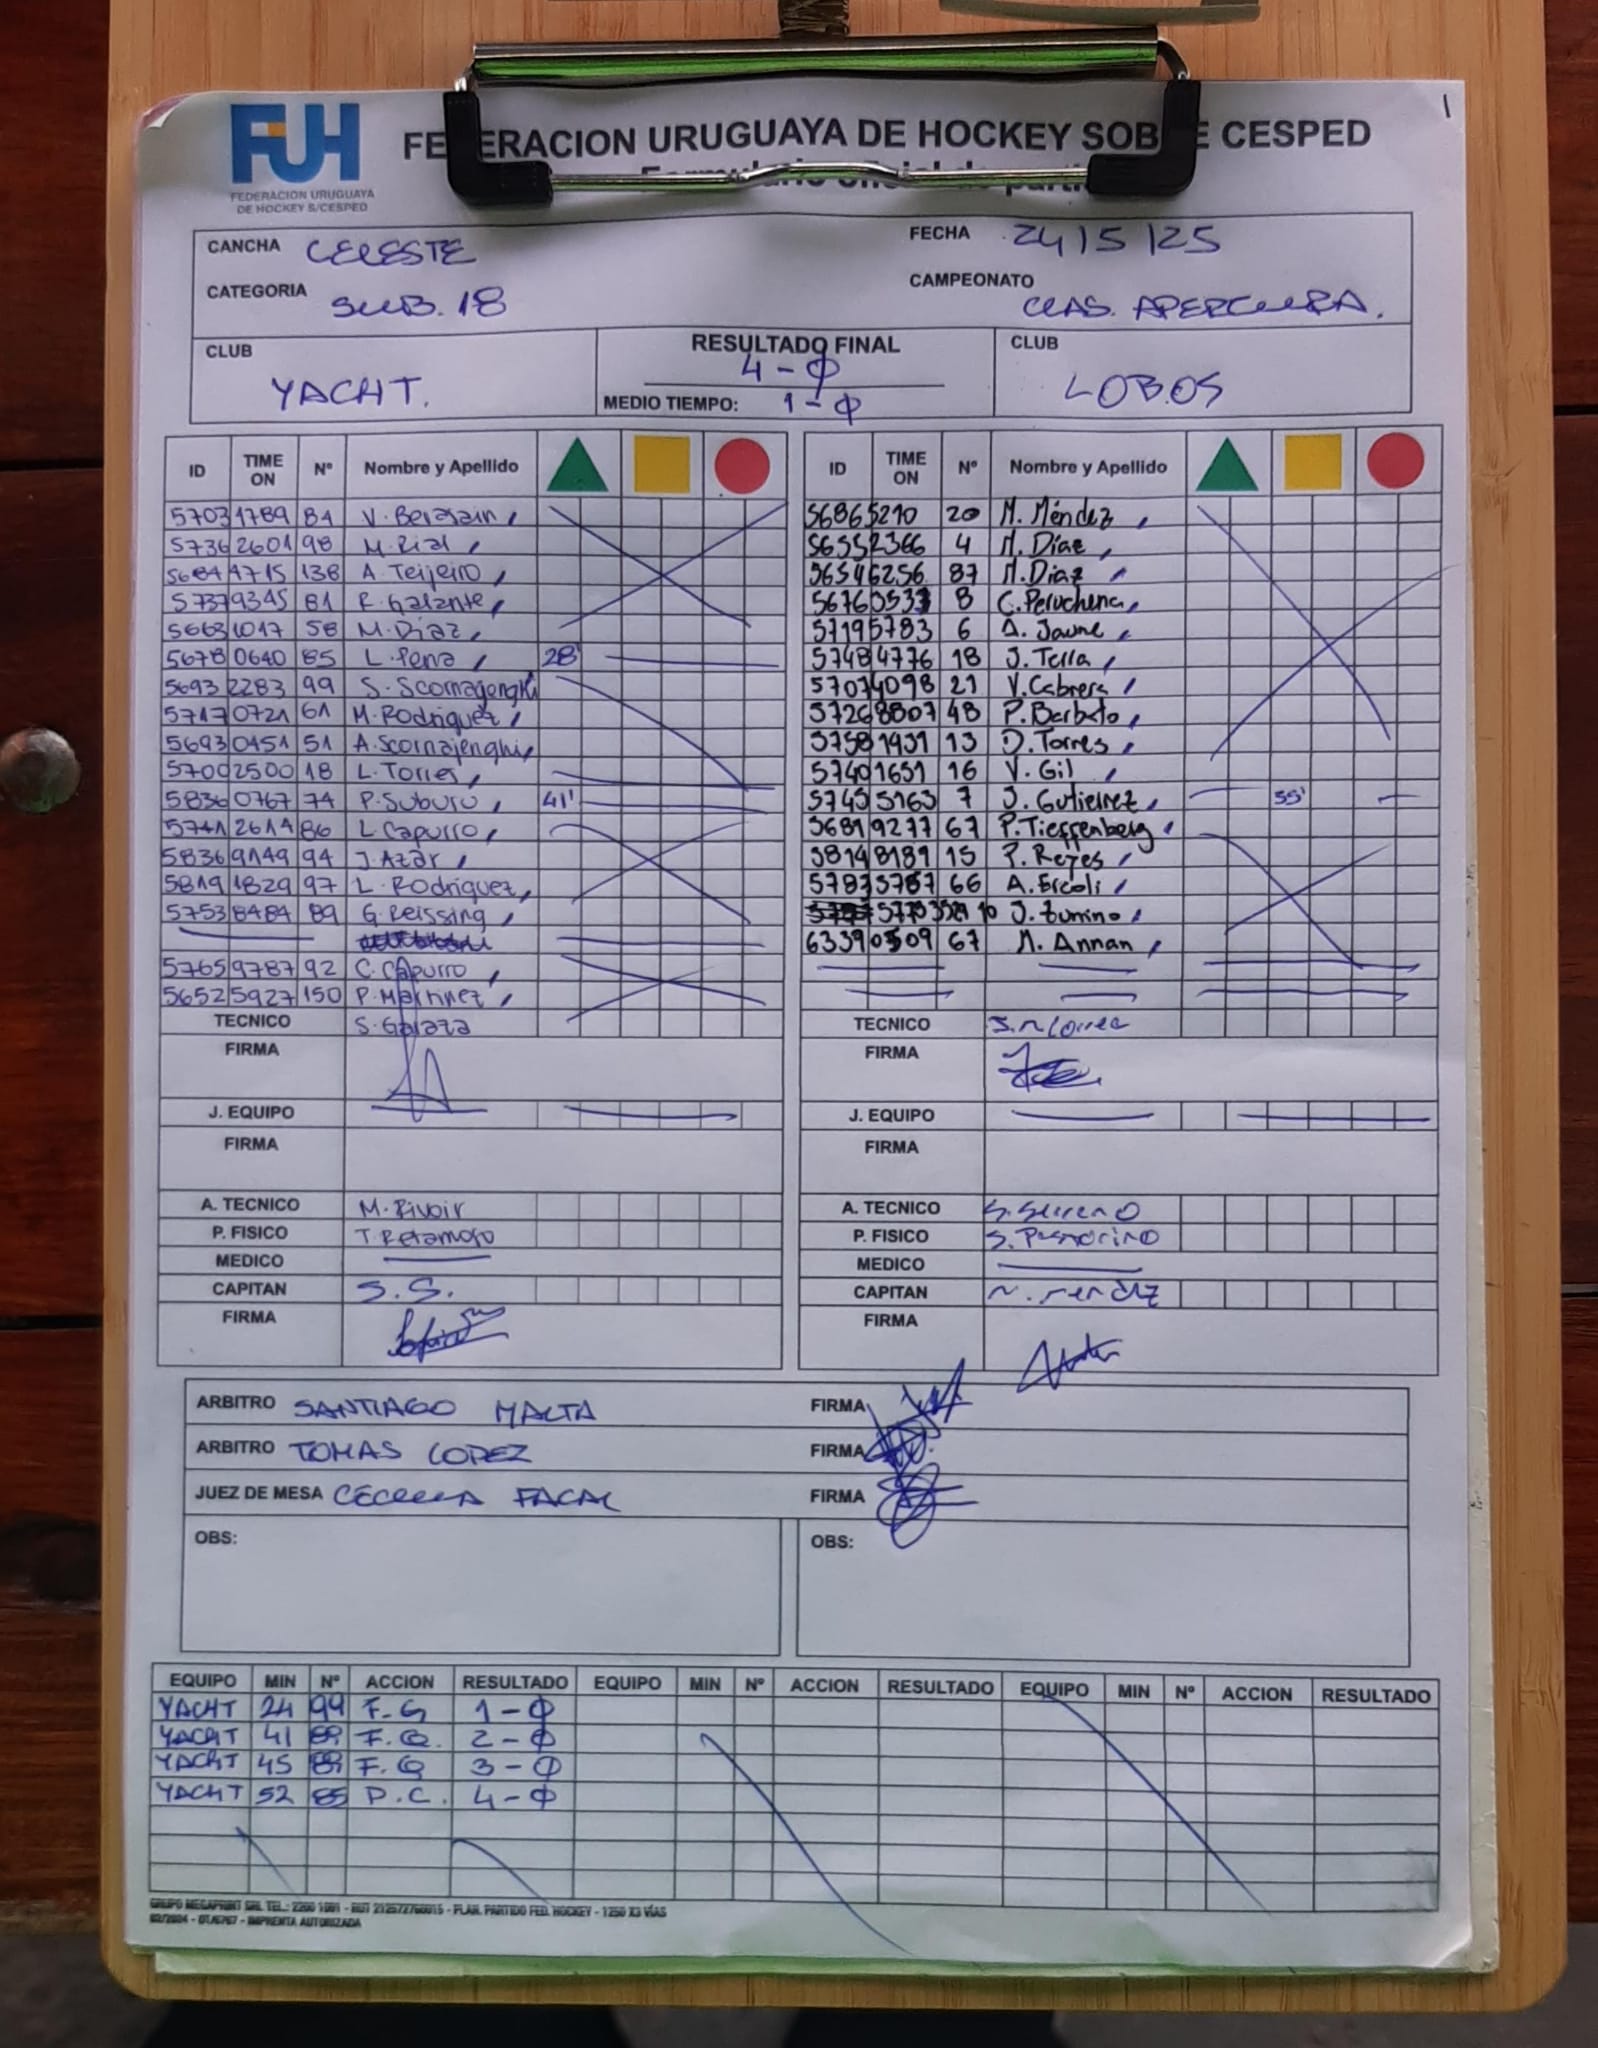 1
FUH
FEDERACION URUGUAYA
DE HOCKEY S/CESPED
FEDERACION URUGUAYA DE HOCKEY SOBRE CESPED
CANCHA CELESTE FECHA 24/5/25
CATEGORIA SUB.18 CAMPEONATO CLAS. APERTURA.
CLUB YACHT.
RESULTADO FINAL 4-0
MEDIO TIEMPO: 1-0
CLUB LOBOS
ID TIME ON Nº Nombre y Apellido
57031789 84 V. Berasain
57362601 98 M. Rial
56844715 138 A. Teijeiro
57379345 81 R. Galante
56631017 58 M. Díaz
56780640 85 L. Pena 28'
56932283 99 S. Scornajenghi
57170721 61 M. Rodriguez
56930451 51 A. Scornajenghi
57002500 18 L. Torres
58360767 74 P. Suburú 41'
57412614 86 L. Capurro
58369149 94 J. Azar
58191829 97 L. Rodriguez
57538484 89 G. Reissing
57659787 92 C. Capurro
56525927 150 P. Martinez
TECNICO S. Galaza
FIRMA
J. EQUIPO
FIRMA
A. TECNICO M. Rivoir
P. FISICO T. Retamoso
MEDICO
CAPITAN S.S.
FIRMA
ID TIME ON Nº Nombre y Apellido
56865210 20 M. Méndez
56552366 4 M. Díaz
56546256 87 M. Díaz
56760533 8 C. Peruchena
57195783 6 A. Jaume
57484776 18 J. Terra
57074098 21 V. Cabrera
57268807 48 P. Barbato
57581931 13 D. Torres
57401651 16 V. Gil
57455163 7 J. Gutierrez 55'
56819277 67 P. Tieffenberg
58148189 15 P. Reyes
57873787 66 A. Ercoli
10 J. Zunino
63390509 67 M. Annan
TECNICO
FIRMA
J. EQUIPO
FIRMA
A. TECNICO S. Serreno
P. FISICO S. Pastorino
MEDICO
CAPITAN M. Mendez
FIRMA
ARBITRO SANTIAGO MALTA FIRMA
ARBITRO TOMAS LOPEZ FIRMA
JUEZ DE MESA CECILIA FACAL FIRMA
OBS: OBS:
EQUIPO MIN Nº ACCION RESULTADO EQUIPO MIN Nº ACCION RESULTADO EQUIPO MIN Nº ACCION RESULTADO
YACHT 24 94 F.G 1-0
YACHT 41 89 F.G. 2-0
YACHT 45 89 F.G 3-0
YACHT 52 85 P.C. 4-0
GRUPO MEGAPRINT SRL TEL.: 2200 1001 - RUT 212572760015 - PLAN. PARTIDO FED. HOCKEY - 1250 X3 VÍAS
IMPRENTA AUTORIZADA